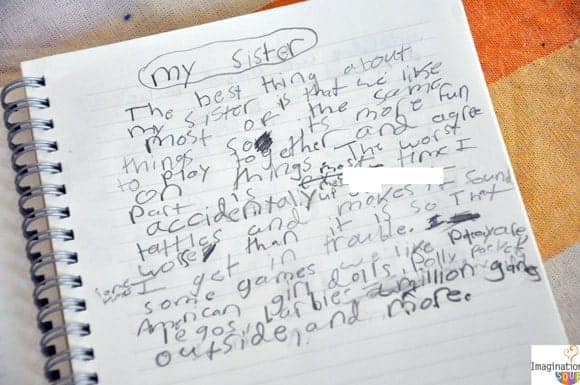 my sister
The best thing about
my sister is that we like
most of the same
things so its more fun
to play together and agree
on things. The worst
part is time I
accidentaly
tattles and makes it sound
worse than it is so That
I get in trouble.
some games we like are
American girl dolls, Polly Pocket
legos, barbies, a million games
outside, and more.
Imagination
SOUP